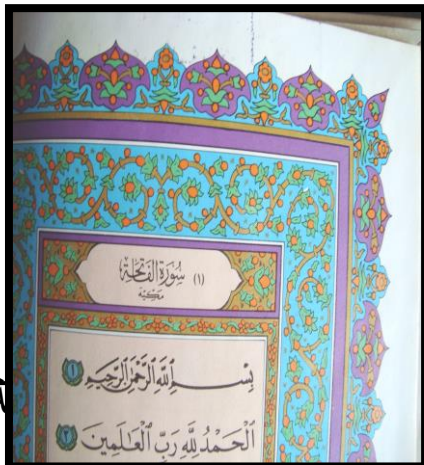 (١) سُورَةُ الفَاتِحَةِ
مَكِّيَّة
بِسْمِ ٱللَّهِ ٱلرَّحْمَٰنِ ٱلرَّحِيمِ ١
ٱلْحَمْدُ لِلَّهِ رَبِّ ٱلْعَٰلَمِينَ ٢